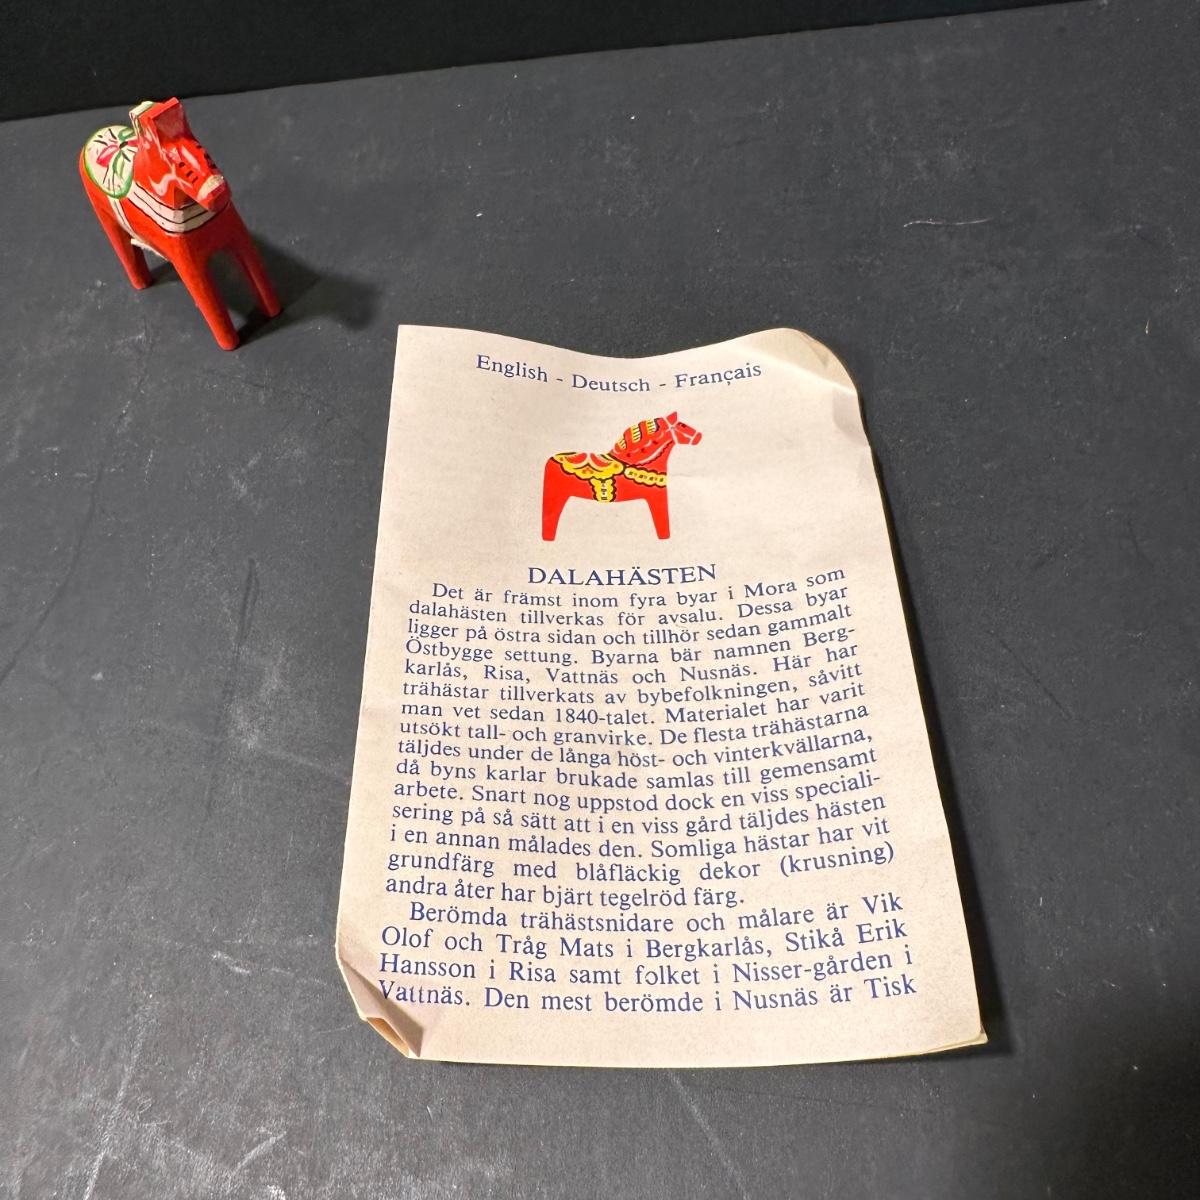 English - Deutsch - Français
DALAHÄSTEN
Det är främst inom fyra byar i Mora som
dalahästen tillverkas för avsalu. Dessa byar
ligger på östra sidan och tillhör sedan gammalt
Östbygge settung. Byarna bär namnen Berg-
karlås, Risa, Vattnäs och Nusnäs. Här har
trähästar tillverkats av bybefolkningen, såvitt
man vet sedan 1840-talet. Materialet har varit
utsökt tall- och granvirke. De flesta trähästarna
täljdes under de långa höst- och vinterkvällarna,
då byns karlar brukade samlas till gemensamt
arbete. Snart nog uppstod dock en viss speciali-
sering på så sätt att i en viss gård täljdes hästen
i en annan målades den. Somliga hästar har vit
grundfärg med blåfläckig dekor (krusning)
andra åter har bjärt tegelröd färg.
Berömda trähästsnidare och målare är Vik
Olof och Tråg Mats i Bergkarlås, Stikå Erik
Hansson i Risa samt folket i Nisser-gården i
Vattnäs. Den mest berömde i Nusnäs är Tisk